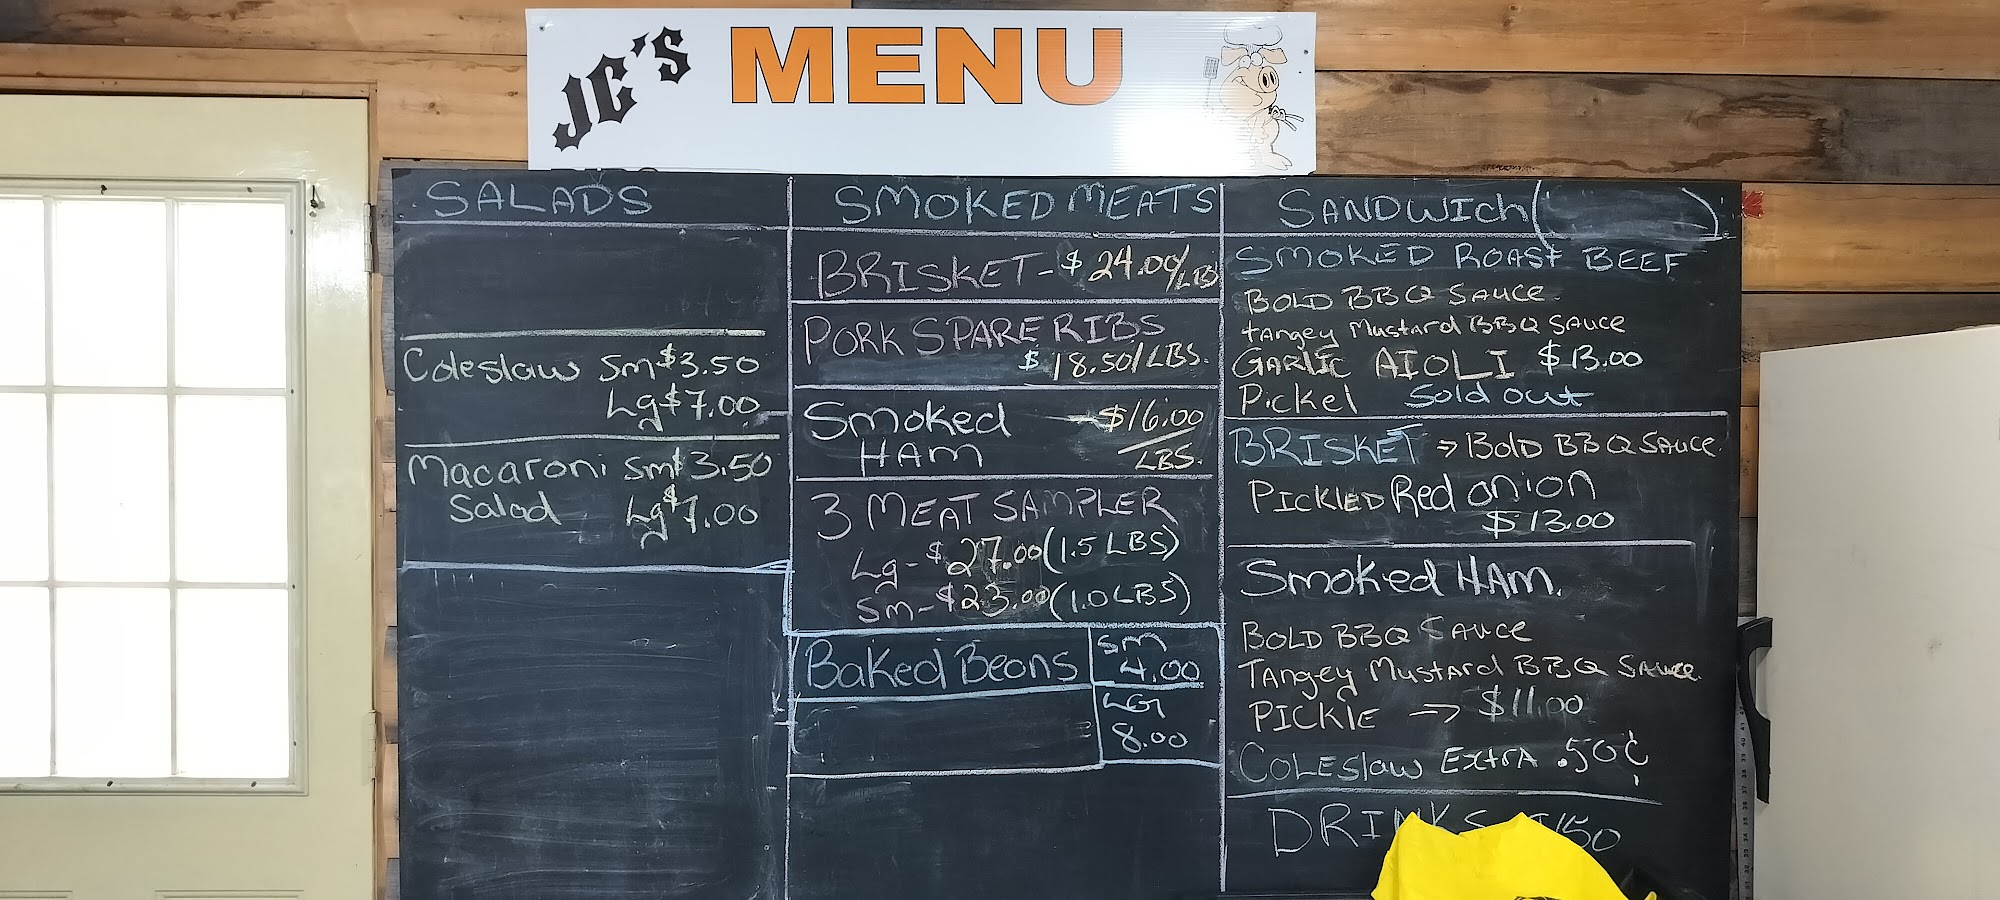 JC's MENU
SALADS
Coleslaw Sm $3.50
Lg $7.00
Macaroni Sm $3.50
Salad Lg $7.00
SMOKED MEATS
BRISKET - $24.00/LB
PORK SPARE RIBS
$18.50/LBS.
Smoked - $16.00
HAM LBS.
3 MEAT SAMPLER
Lg - $27.00 (1.5 LBS)
Sm - $23.00 (1.0 LBS)
Baked Beans Sm
4.00
LG
8.00
SANDWIch
SMOKED ROAST BEEF
BOLD BBQ SAUCE
tANgey Mustard BBQ SAUCE
GARLIC AIOLI $13.00
Pickel Sold out
BRISKET → BOLD BBQ SAUCE
PICKLED Red onion
$13.00
Smoked HAM.
BOLD BBQ SAUCE
TANgey Mustard BBQ SAUCE
PICKlE → $11.00
COLESlaw EXtRA .50¢
DRINKS